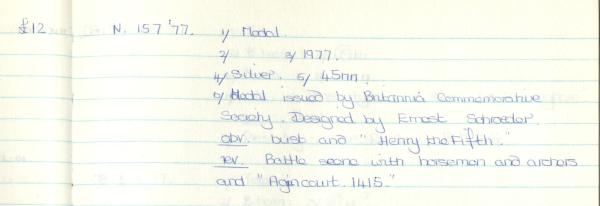 £12 N. 157 '77. 1/ Medal.
2/ 3/ 1977.
4/ Silver. 5/ 45mm.
6/ Medal issued by Britannia Commemorative
Society. Designed by Ernest Schroeder.
obv. bust and "Henry the Fifth."
rev. Battle scene with horsemen and archers
and "Agincourt. 1415."